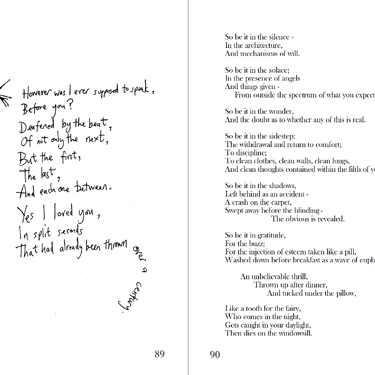 However was I ever supposed to speak,
Before you?
Deafened by the beat,
Of not only the next,
But the first,
The last,
And each one between.
Yes I loved you,
In split seconds
That had already been thrown
over a century.
89
So be it in the silence -
In the architecture,
And mechanisms of will.
So be it in the solace;
In the presence of angels
And things given -
From outside the spectrum of what you expect
So be it in the wonder,
And the doubt as to whether any of this is real.
So be it in the sidestep;
The withdrawal and return to comfort;
To discipline;
To clean clothes, clean walls, clean lungs,
And clean thoughts contained within the filth of
So be it in the shadows,
Left behind as an accident -
A crash on the carpet,
Swept away before the blinding -
The obvious is revealed.
So be it in gratitude,
For the buzz;
For the injection of esteem taken like a pill,
Washed down before breakfast as a wave of
An unbelievable thrill,
Thrown up after dinner,
And tucked under the pillow,
Like a tooth for the fairy,
Who comes in the night,
Gets caught in your daylight,
Then dies on the windowsill.
90